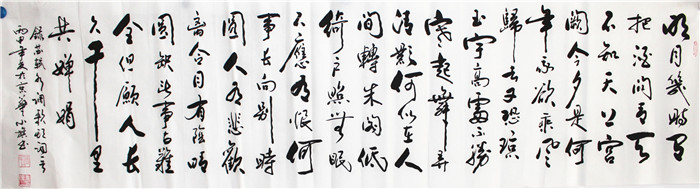 明月幾時有
把酒問青天
不知天上宮
闕今夕是何
年我欲乘風
歸去又恐瓊
玉宇高處不勝
寒起舞弄
清影何似在人
間轉朱閣低
綺户照無眠
不應有恨何
事長向別時
圓人有悲歡
離合月有陰晴
圓缺此事古難
全但願人長
久千里
共嬋娟
錄苏軾水调歌頭词
丙申年夏於京華